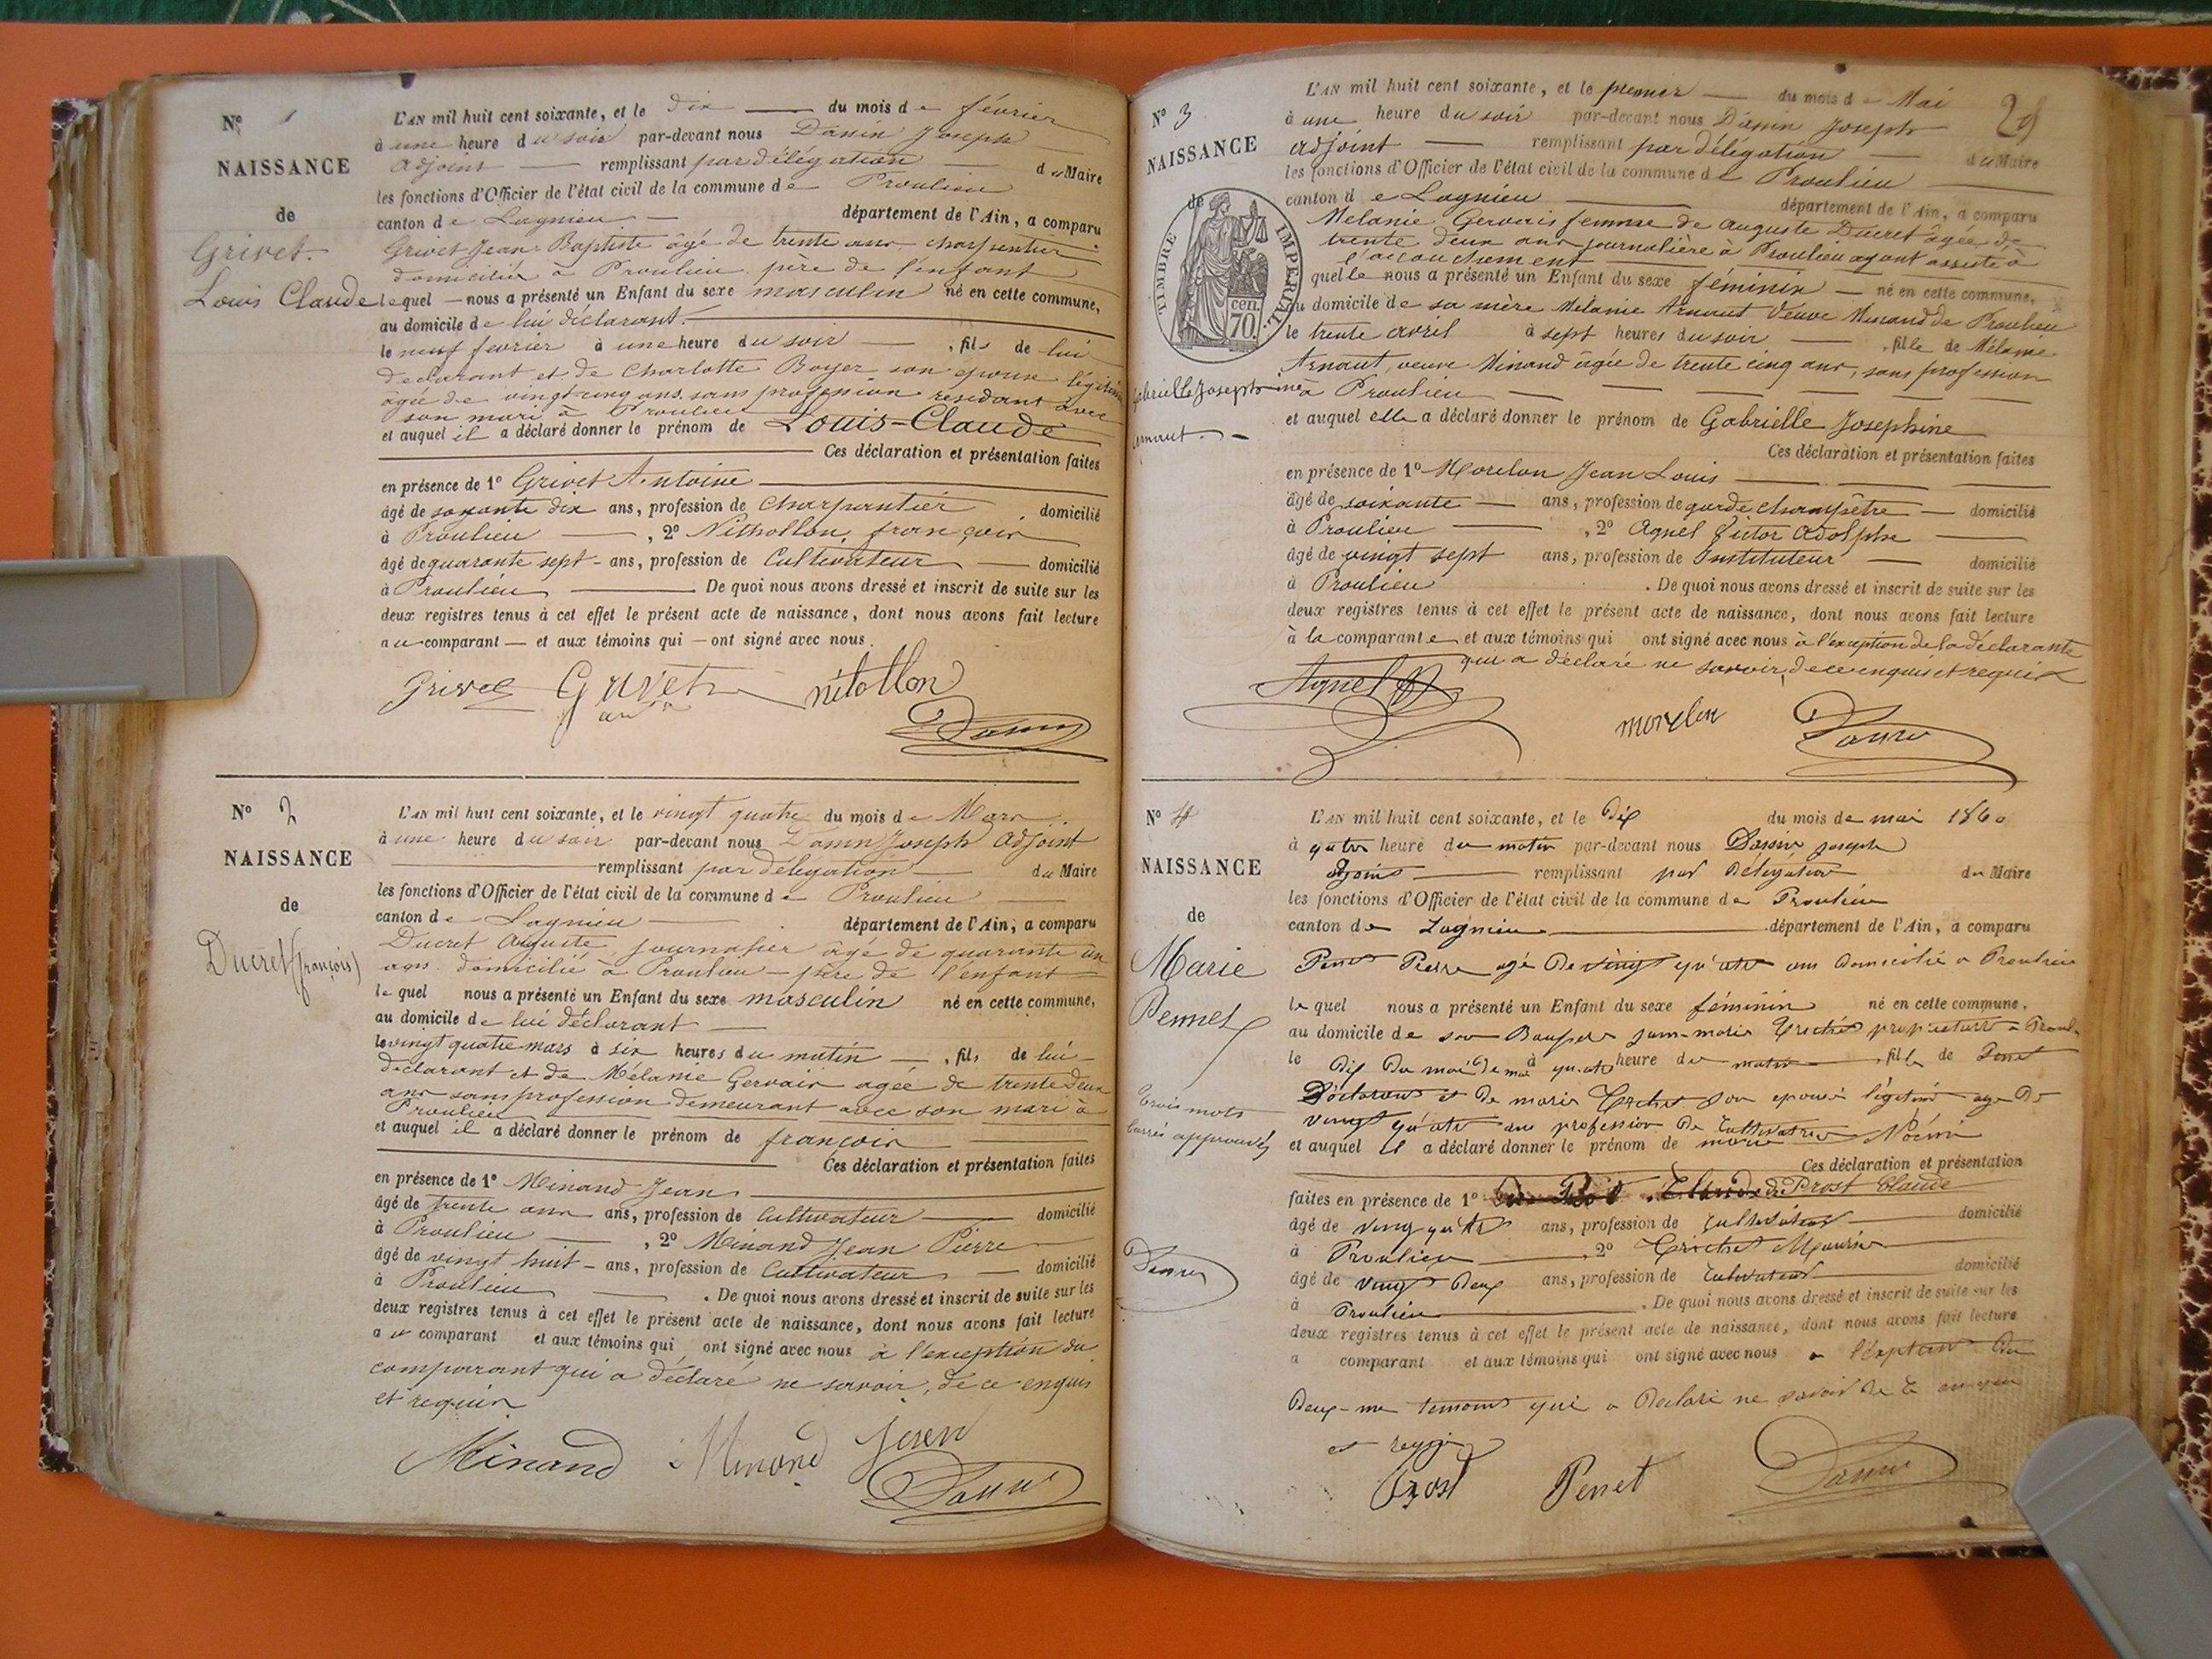 N° 1
NAISSANCE
de
Grivet
Louis Claude
L'AN mil huit cent soixante, et le dix du mois de février
à une heure du soir par-devant nous Danin Joseph
adjoint remplissant par délégation du Maire
les fonctions d'Officier de l'état civil de la commune de Proulieu
canton de Lagnieu département de l'Ain, a comparu
Grivet Jean-Baptiste âgé de trente ans charpentier
domicilié à Proulieu père de l'enfant
lequel nous a présenté un Enfant du sexe masculin né en cette commune,
au domicile de lui déclarant
le neuf fevrier à une heure du soir , fils de lui
declarant et de Charlotte Boyer son epouse légitime
agée de vingt cinq ans sans profession residant avec
son mari à Proulieu
et auquel il a déclaré donner le prénom de Louis-Claude
Ces déclaration et présentation faites
en présence de 1° Grivet Antoine
âgé de soxante dix ans, profession de Charpantier domicilié
à Proulieu , 2° Nithollon, françois
âgé de quarante sept ans, profession de Cultivateur domicilié
à Proulieu . De quoi nous avons dressé et inscrit de suite sur les
deux registres tenus à cet effet le présent acte de naissance, dont nous avons fait lecture
au comparant et aux témoins qui ont signé avec nous.
Grivet Grivet nitollon
Danin
N° 2
NAISSANCE
de
Ducret (françois)
L'AN mil huit cent soixante, et le vingt quatre du mois de Mars
à une heure du soir par-devant nous Danin Joseph adjoint
remplissant par délégation du Maire
les fonctions d'Officier de l'état civil de la commune de Proulieu
canton de Lagnieu département de l'Ain, a comparu
Ducret Auguste journalier âgé de quarante un
ans domicilié à Proulieu père de l'enfant
lequel nous a présenté un Enfant du sexe masculin né en cette commune,
au domicile de lui déclarant
le vingt quatre mars à six heures du matin , fils de lui
déclarant et de Mélanie Gervais agée de trente deux
ans sans profession demeurant avec son mari à
Proulieu
et auquel il a déclaré donner le prénom de françois
Ces déclaration et présentation faites
en présence de 1° Minand Jean
âgé de trente ans ans, profession de Cultivateur domicilié
à Proulieu , 2° Minand Jean Pierre
âgé de vingt huit ans, profession de Cultivateur domicilié
à Proulieu . De quoi nous avons dressé et inscrit de suite sur les
deux registres tenus à cet effet le présent acte de naissance, dont nous avons fait lecture
au comparant et aux témoins qui ont signé avec nous à l'exception du
comparant qui a déclaré ne savoir, de ce enquis
et requis
Minand Minand Jean
Danin
29
N° 3
NAISSANCE
de
TIMBRE IMPERIAL
70 cen.
Gabrielle Joseph
Arnaut
L'AN mil huit cent soixante, et le premier du mois de Mai
à une heure du soir par-devant nous Danin Joseph
adjoint remplissant par délégation du Maire
les fonctions d'Officier de l'état civil de la commune de Proulieu
canton de Lagnieu département de l'Ain, a comparu
Melanie Gervais femme de Auguste Ducret âgée de
trente deux ans journalière à Proulieu ayant assisté à
l'accouchement
quelle nous a présenté un Enfant du sexe féminin né en cette commune,
au domicile de sa mère Mélanie Arnaut Veuve Minand de Proulieu
le trente avril à sept heures du soir , fille de Mélanie
Arnaut, veuve Minand âgée de trente cinq ans, sans profession
à Proulieu
et auquel elle a déclaré donner le prénom de Gabrielle Josephine
Ces déclaration et présentation faites
en présence de 1° Morelon Jean Louis
âgé de soixante ans, profession de garde champêtre domicilié
à Proulieu , 2° Agnel Victor Adolphe
âgé de vingt sept ans, profession de Instituteur domicilié
à Proulieu . De quoi nous avons dressé et inscrit de suite sur les
deux registres tenus à cet effet le présent acte de naissance, dont nous avons fait lecture
à la comparante et aux témoins qui ont signé avec nous à l'exception de la déclarante
qui a déclaré ne savoir, de ce enquis et requis
Agnel morelon Danin
N° 4
NAISSANCE
de
Marie
Pennet
trois mots
barrés approuvés
Danin
L'AN mil huit cent soixante, et le dix du mois de mai 1860
à quatre heure du matin par-devant nous Dassin joseph
adjoint remplissant par délégation du Maire
les fonctions d'Officier de l'état civil de la commune de Proulieu
canton de Lagnieu département de l'Ain, a comparu
Pennet Pierre agé de vingt quatre ans domicilié a Proulieu
lequel nous a présenté un Enfant du sexe féminin né en cette commune.
au domicile de son Beaupere propietaire a
le dix du mois de mai à heure du matin , fille de Pennet
Déclarant et de marie son epouse légitime age de
vingt quatre ans profession de Cultivatrice
et auquel il a déclaré donner le prénom de marie Noémi
Ces déclaration et présentation
faites en présence de 1° Prost Claude
âgé de ving quatre ans, profession de Cultivateur domicilié
à Proulieu 2°
âgé de vingt deux ans, profession de Cultivateur domicilié
à Proulieu . De quoi nous avons dressé et inscrit de suite sur les
deux registres tenus à cet effet le présent acte de naissance, dont nous avons fait lecture
a comparant et aux témoins qui ont signé avec nous a l'exption du
Deux-me temoins qui a Declaré ne savoir de ce enquis
et requis
Prost Penet Danin